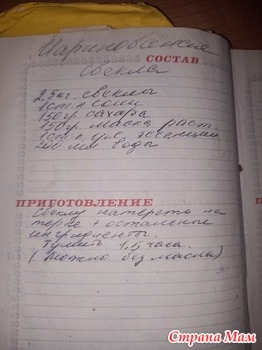 Маринованная
свекла
СОСТАВ
2,5 кг. свекла
1 ст. л соли
150 гр. сахара
150 гр. масла раст.
1 ст. л. укс. эссенции
200 мл воды
ПРИГОТОВЛЕНИЕ
Свеклу натереть на
терке и остальные
ингридиенты.
Тушить 1,5 часа.
(Можно без масла)
Страна Мам